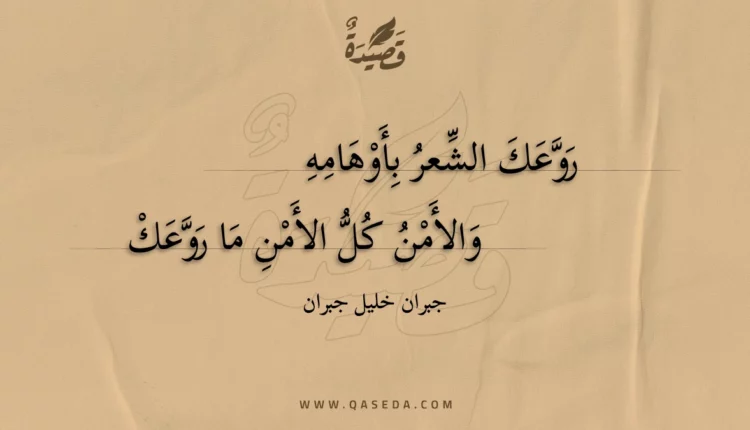 قَصِيدَةٌ
رَوَّعَكَ الشِّعرُ بِأَوْهَامِهِ
وَالأَمْنُ كُلُّ الأَمْنِ مَا رَوَّعَكْ
جبران خليل جبران
WWW.QASEDA.COM